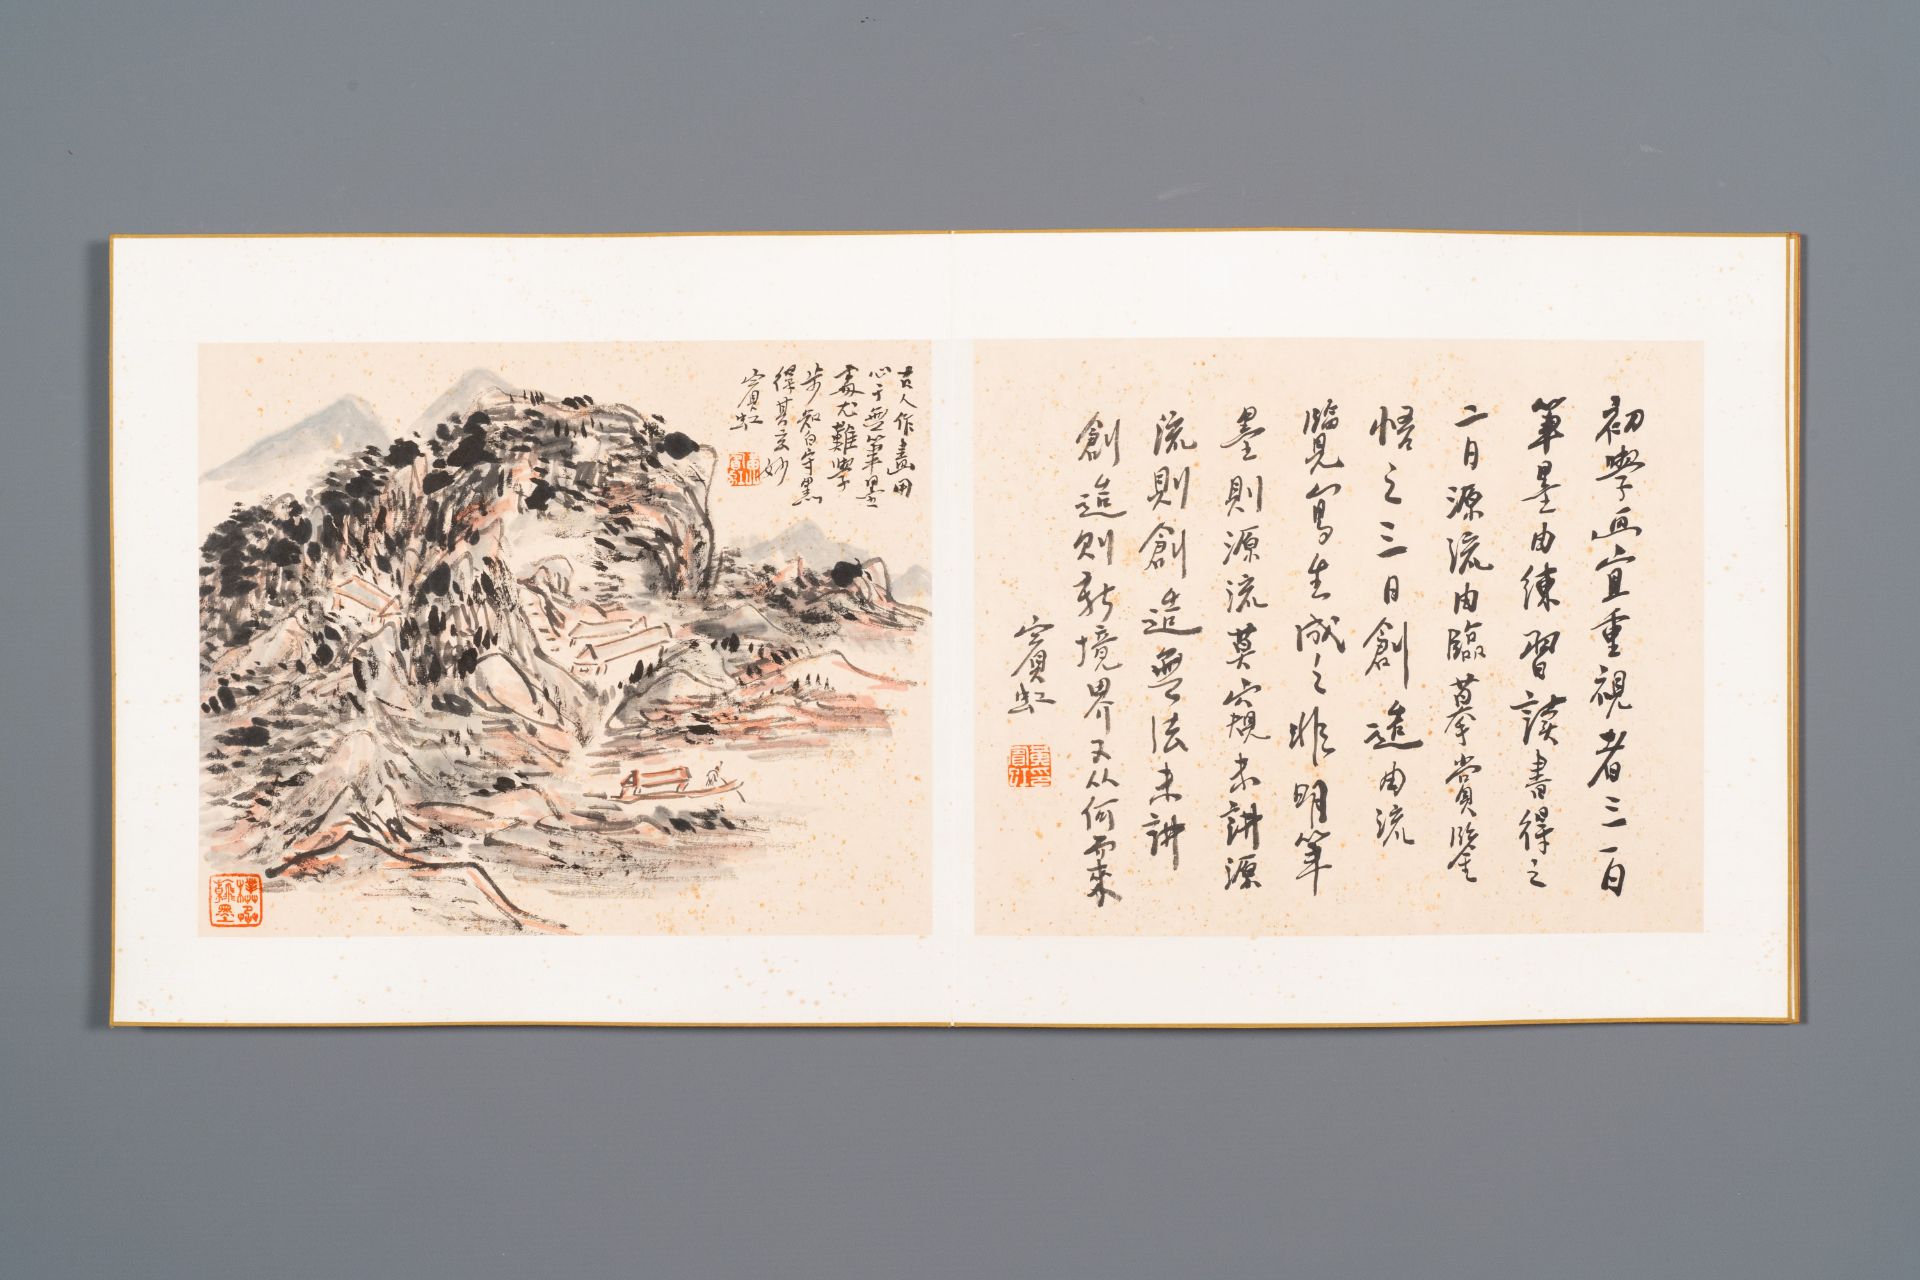 初學画宜重視者三一曰
筆墨由練習讀書得之
二曰源流由臨摹賞鑒
悟之三曰創造由流
臨見寫生成之非明筆
墨則源流莫窺未講源
流則創造無法未講
創造則新境界又从何而來
賓虹
古人作畫用
心于無筆墨
處尤難學
步知白守黑
得其玄妙
賓虹